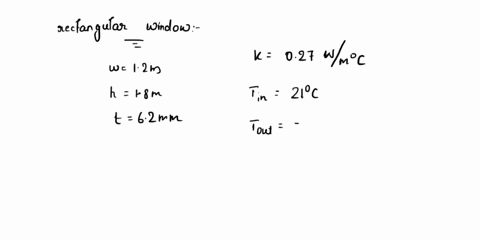 rectangular window:-
w= 1.2m
h = 1.8m
t = 6.2mm
K = 0.27 W/m°C
Tin = 21°C
Tout = -